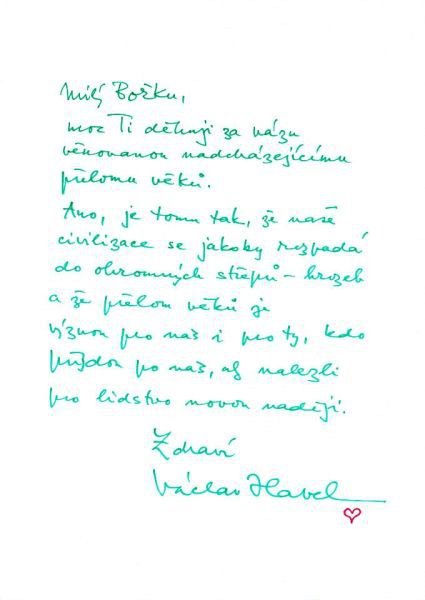 Milý Bořku,
moc Ti děkuji za vázu
věnovanou nadcházejícímu
přelomu věků.
Ano, je tomu tak, že naše
civilizace se jakoby rozpadá
do ohromných střepů – hrozeb
a že přelom věků je
výzvou pro nás i pro ty, kdo
přijdou po nás, aby nalezli
pro lidstvo novou naději.
Zdraví
Václav Havel